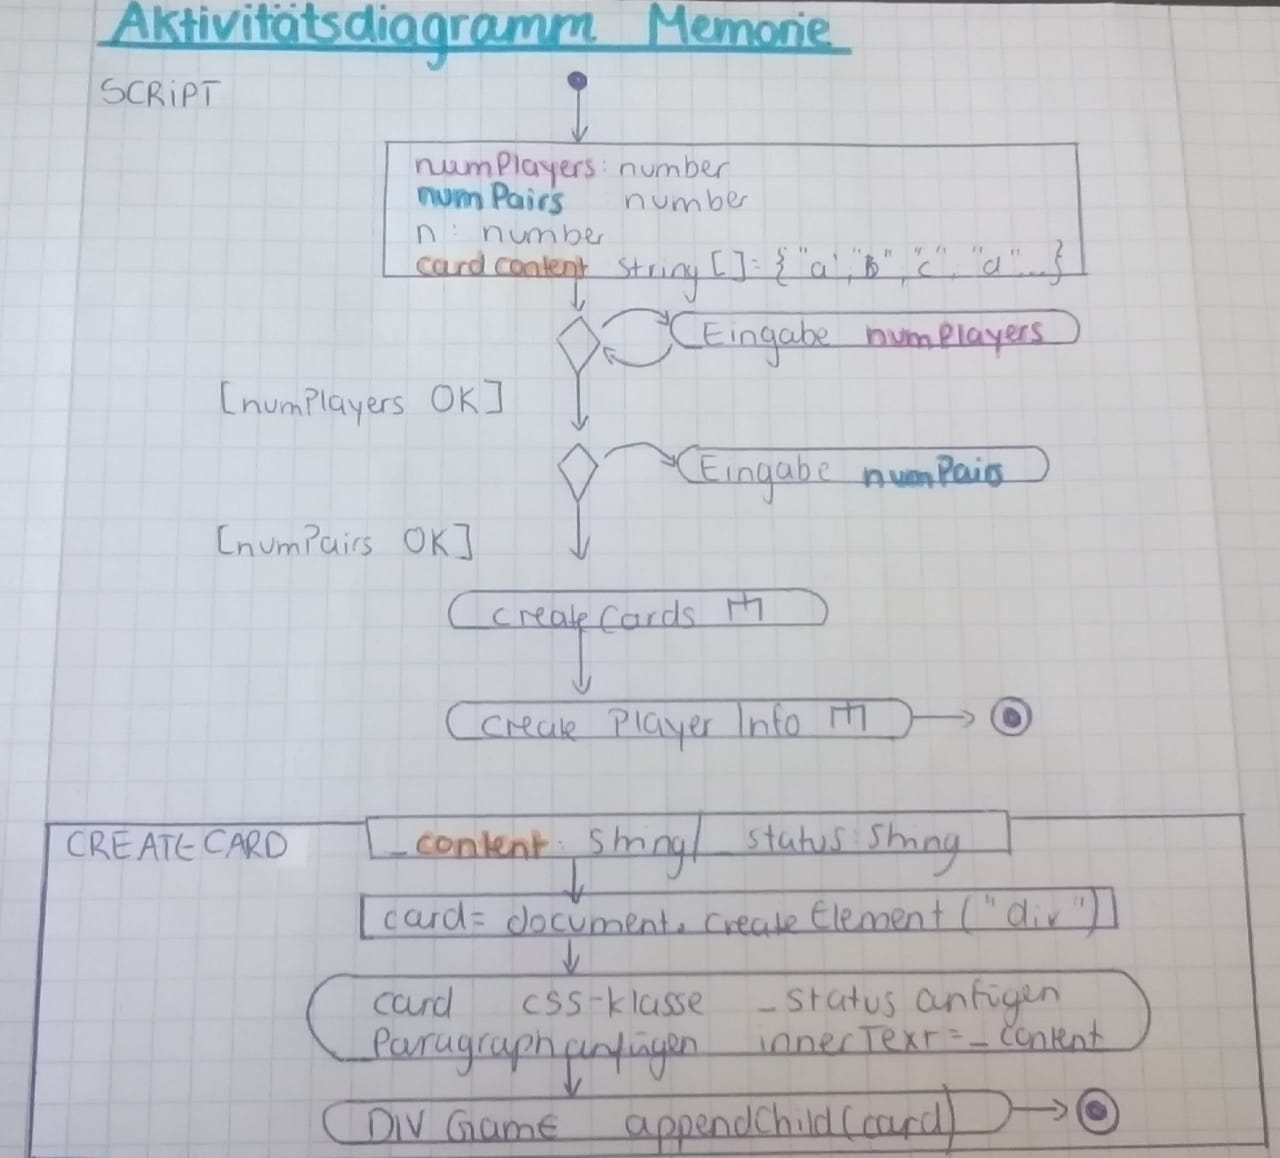 Aktivitätsdiagramm Memorie
SCRiPT
numPlayers: number
numPairs number
n: number
card content string []= { "a", "b", "c", "d"...}
Eingabe numPlayers
[numPlayers OK]
Eingabe numPairs
[numPairs OK]
createCards
create Player Info
CREATE CARD
_content: String/ _status: String
card= document. createElement ("div")
card css-klasse _status anfügen
Paragraph anfügen innerText=_content
DIV Game appendChild(card)